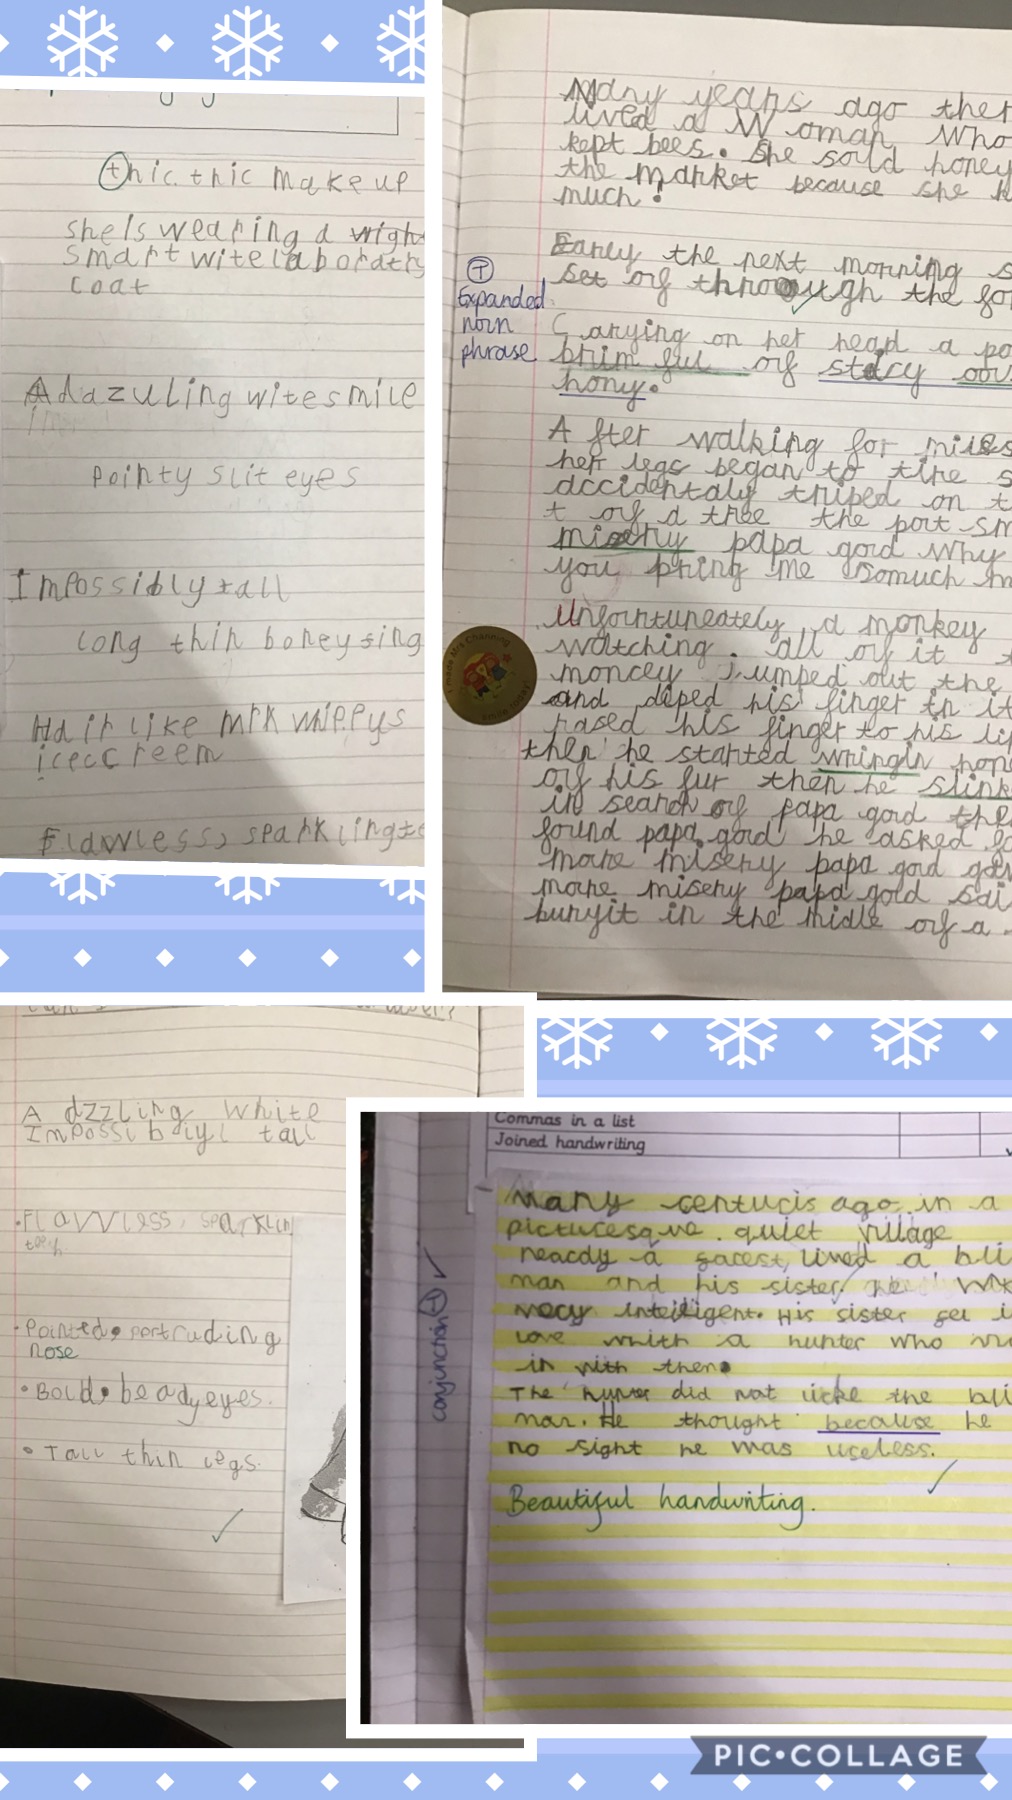 thic thic make up
she is wearing a
smart wite laboratry
coat
A dazuling wite smile
Pointy slit eyes
Impossibly tall
long thin boney
Hair like mrk whippys
icecc reem
Flawless, sparkling
Many years ago
lived a Woman who
kept bees. She sould honey
the market because she
much.
Earley the next morning
set of through the
T
Expanded
noun
phrase
Carying on her head a
brim ful of
hony.
After walking for
her legs began to tire
accidentaly triped on
t of a tree the pot
misery papa gord Why
you bring me somuch
Unforntuneately a monkey
watching. all of it
moncey jumped out the
and diped his finger in it
rased his finger to his
then he started wringin
of his fur then he
in search of papa gord
found papa gord he asked
more misery papa gord
more misery papa gord
buryit in the midle of a
I made Mrs Channing
smile today
A dzzling white
Impossi b iyl tall
Flawless,
Pointed, portruding
nose
Bold, beady eyes.
Tall thin legs.
Commas in a list
Joined handwriting
conjunction
Many centuris ago, in a
picturesque, quiet village
neardy a forest, lived a
man and his sister. He
very inteligent. His sister fel
love which a hunter who
in with them.
The hunter did not licke the
man. He thought because he
no sight he was useless.
Beautiful handwriting.
PIC•COLLAGE